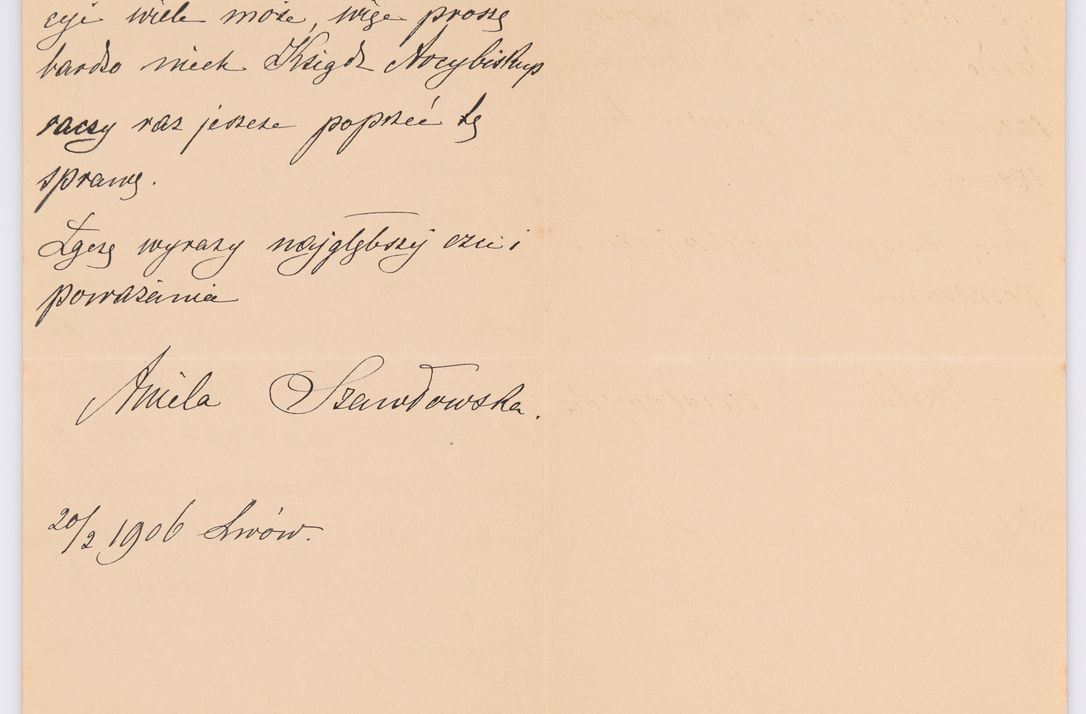 cyi wiele może, więc proszę
bardzo niech Ksiądz Arcybiskup
raczy raz jeszcze poprzeć tę
sprawę.
Łączę wyrazy najgłębszej czci i
poważania
Aniela Szawłowska.
20/2 1906 Lwów.